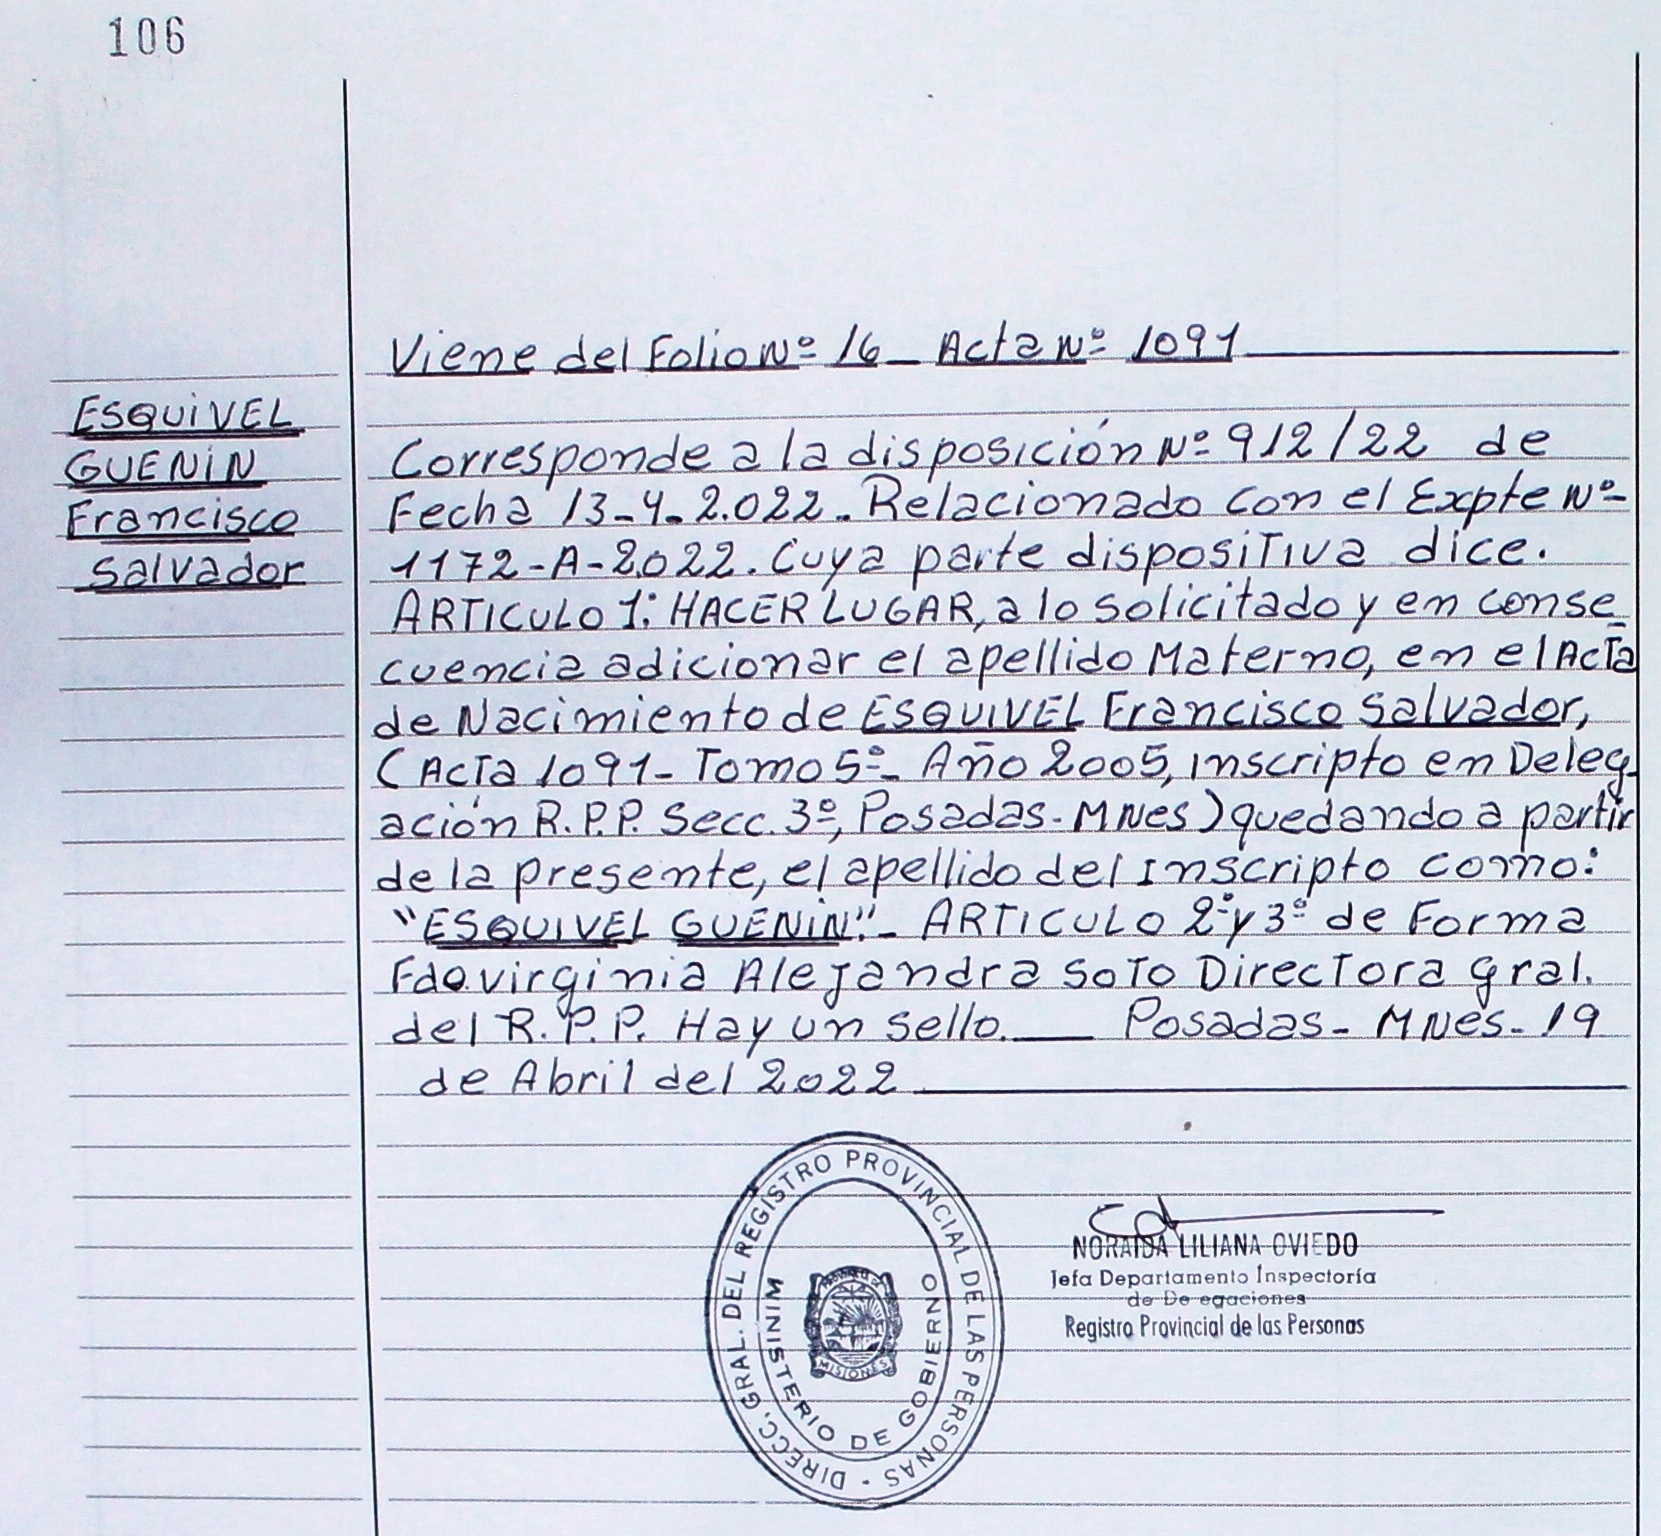 106
Viene del Folio Nº 16 _ Acta Nº 1091
ESQUIVEL
GUENIN
Francisco
Salvador
Corresponde a la disposición Nº 912/22 de
Fecha 13-4-2.022. Relacionado con el Expte Nº
1172-A-2.022. Cuya parte dispositiva dice.
ARTICULO 1º: HACER LUGAR, a lo solicitado y en conse
cuencia adicionar el apellido Materno, en el Acta
de Nacimiento de ESQUIVEL Francisco Salvador,
(Acta 1091- Tomo 5º- Año 2005, inscripto en Deleg-
ación R.P.P. Secc. 3º, Posadas- MNes) quedando a partir
de la presente, el apellido del inscripto como:
"ESQUIVEL GUENIN".- ARTICULO 2º y 3º de Forma
Fdo. Virginia Alejandra Soto Directora Gral.
del R.P.P. Hay un sello. ___ Posadas- MNes- 19
de Abril del 2022
DIRECC. GRAL. DEL REGISTRO PROVINCIAL DE LAS PERSONAS -
MINISTERIO DE GOBIERNO
MISIONES
NORAIDA LILIANA OVIEDO
Jefa Departamento Inspectoría
de De egaciones
Registro Provincial de las Personas